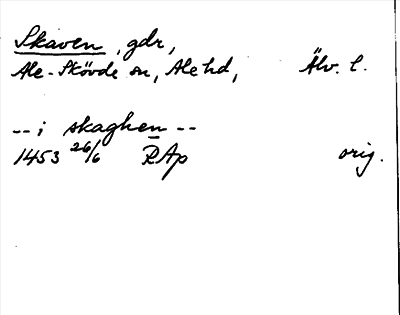 Skaven, gdr,
Ale-Skövde sn, Ale hd, Älv. l.
-- i skaghen --
1453 26/6 RAp orig.